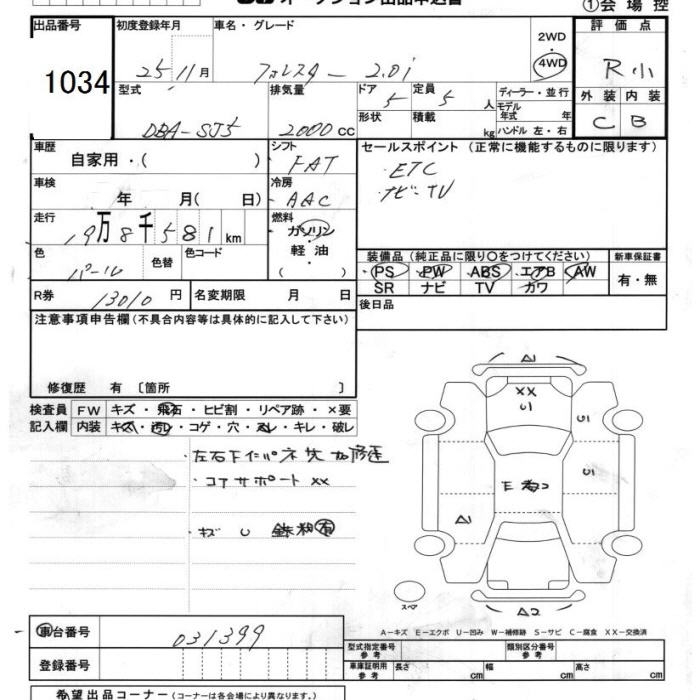 オークション出品申込書 ①会場控
出品番号 初度登録年月 車名・グレード 2WD・4WD 評価点
1034 25 11月 フォレスター 2.0i R小
型式 排気量 ドア 5 定員 5人 ディーラー・並行 外装 内装
DBA-SJ5 2000cc 形状 積載 kg モデル年式 年 C B
ハンドル 左・右
車歴 自家用・( ) シフト FAT セールスポイント (正常に機能するものに限ります)
・ETC
車検 年 月( 日) 冷房 AAC ・ナビ・TV
走行 19万8千581km 燃料 ガソリン・軽油・( )
色 パール 色替 色コード 装備品 (純正品に限り○をつけてください) 新車保証書
PS PW ABS エアB AW 有・無
SR ナビ TV カワ
R券 13010円 名変期限 月 日 後日品
注意事項申告欄 (不具合内容等は具体的に記入して下さい)
修復歴 有 〔箇所 〕
検査員 FW キズ・飛石・ヒビ割・リペア跡・×要
記入欄 内装 キズ・汚レ・コゲ・穴・スレ・キレ・破レ
・コアサポート XX
・キズ U
A1
XX
U1
U1
U1
E
A1
A2
スペア
A-キズ E-エクボ U-凹み W-補修跡 S-サビ C-腐食 XX-交換済
車台番号 031399 型式指定番号 参考 類別区分番号 参考
登録番号 車庫証明用 参考 長さ cm 幅 cm 高さ cm
希望出品コーナー (コーナーは各会場により異なります。)